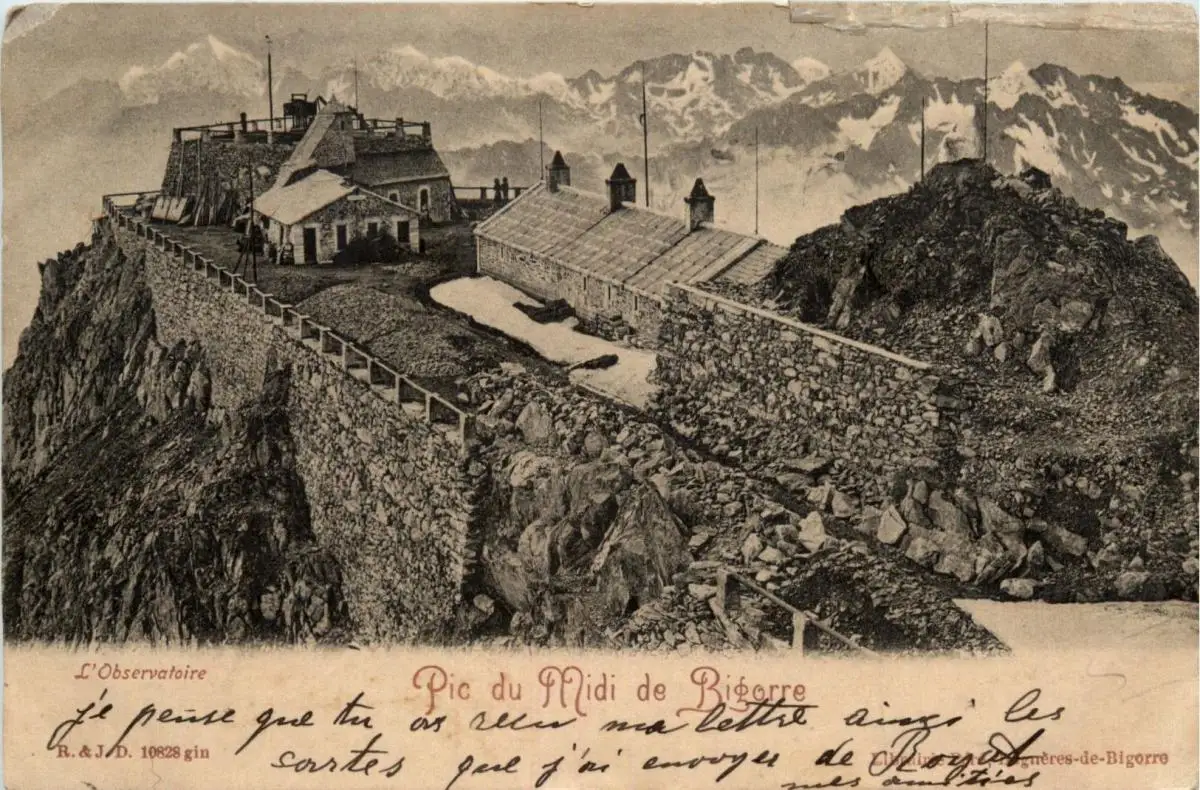 L'Observatoire
Pic du Midi de Bigorre
je pense que tu as recu ma lettre ainsi les
R. & J. D. 10828 gin
Librairie Bagnères-de-Bigorre
sortes que j'ai envoyer de Royat
mes amitiés